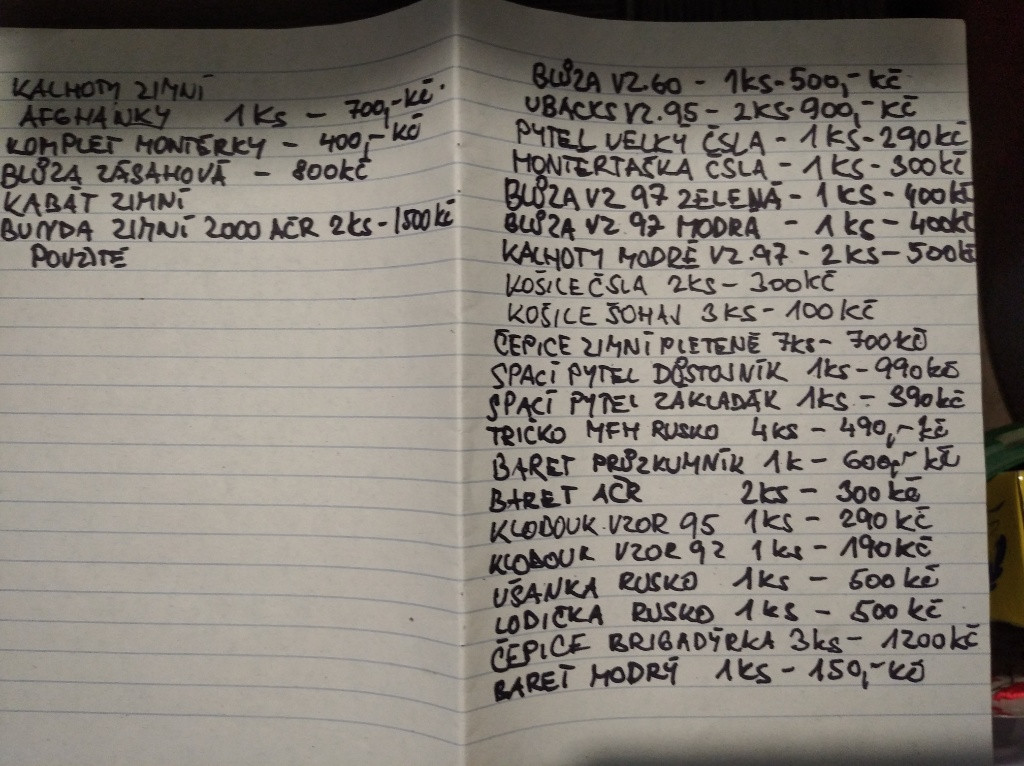 KALHOTY ZIMNÍ
AFGHÁNKY 1KS – 700,-KČ
KOMPLET MONTÉRKY – 400,- KČ
BLŮZA ZÁSAHOVÁ – 800KČ
KABÁT ZIMNÍ
BUNDA ZIMNÍ 2000 AČR 2KS-1500KČ
POUŽITÉ
BLŮZA VZ.60 – 1KS-500,- KČ
UBACKS VZ.95 – 2KS-900,- KČ
PYTEL VELKÝ ČSLA – 1KS-290KČ
MONTERTAŠKA ČSLA – 1KS – 300KČ
BLŮZA VZ 97 ZELENÁ – 1KS – 400KČ
BLŮZA VZ.97 MODRÁ – 1KS – 400KČ
KALHOTY MODRÉ VZ.97 – 2KS – 500KČ
KOŠILE ČSLA 2KS – 300KČ
KOŠILE ŠOHAJ 3KS – 100KČ
ČEPICE ZIMNÍ PLETENÉ 7KS – 700KČ
SPACÍ PYTEL DŮSTOJNÍK 1KS-990KČ
SPACÍ PYTEL ZÁKLADÁK 1KS – 390KČ
TRIČKO MFH RUSKO 4KS – 490,- KČ
BARET PRŮZKUMNÍK 1K – 600,- KČ
BARET AČR 2KS – 300KČ
KLOBOUK VZOR 95 1KS – 290KČ
KLOBOUK VZOR 92 1KS – 190KČ
UŠANKA RUSKO 1KS – 500KČ
LODIČKA RUSKO 1KS – 500KČ
ČEPICE BRIBADÝRKA 3KS – 1200KČ
BARET MODRÝ 1KS – 150,-KČ